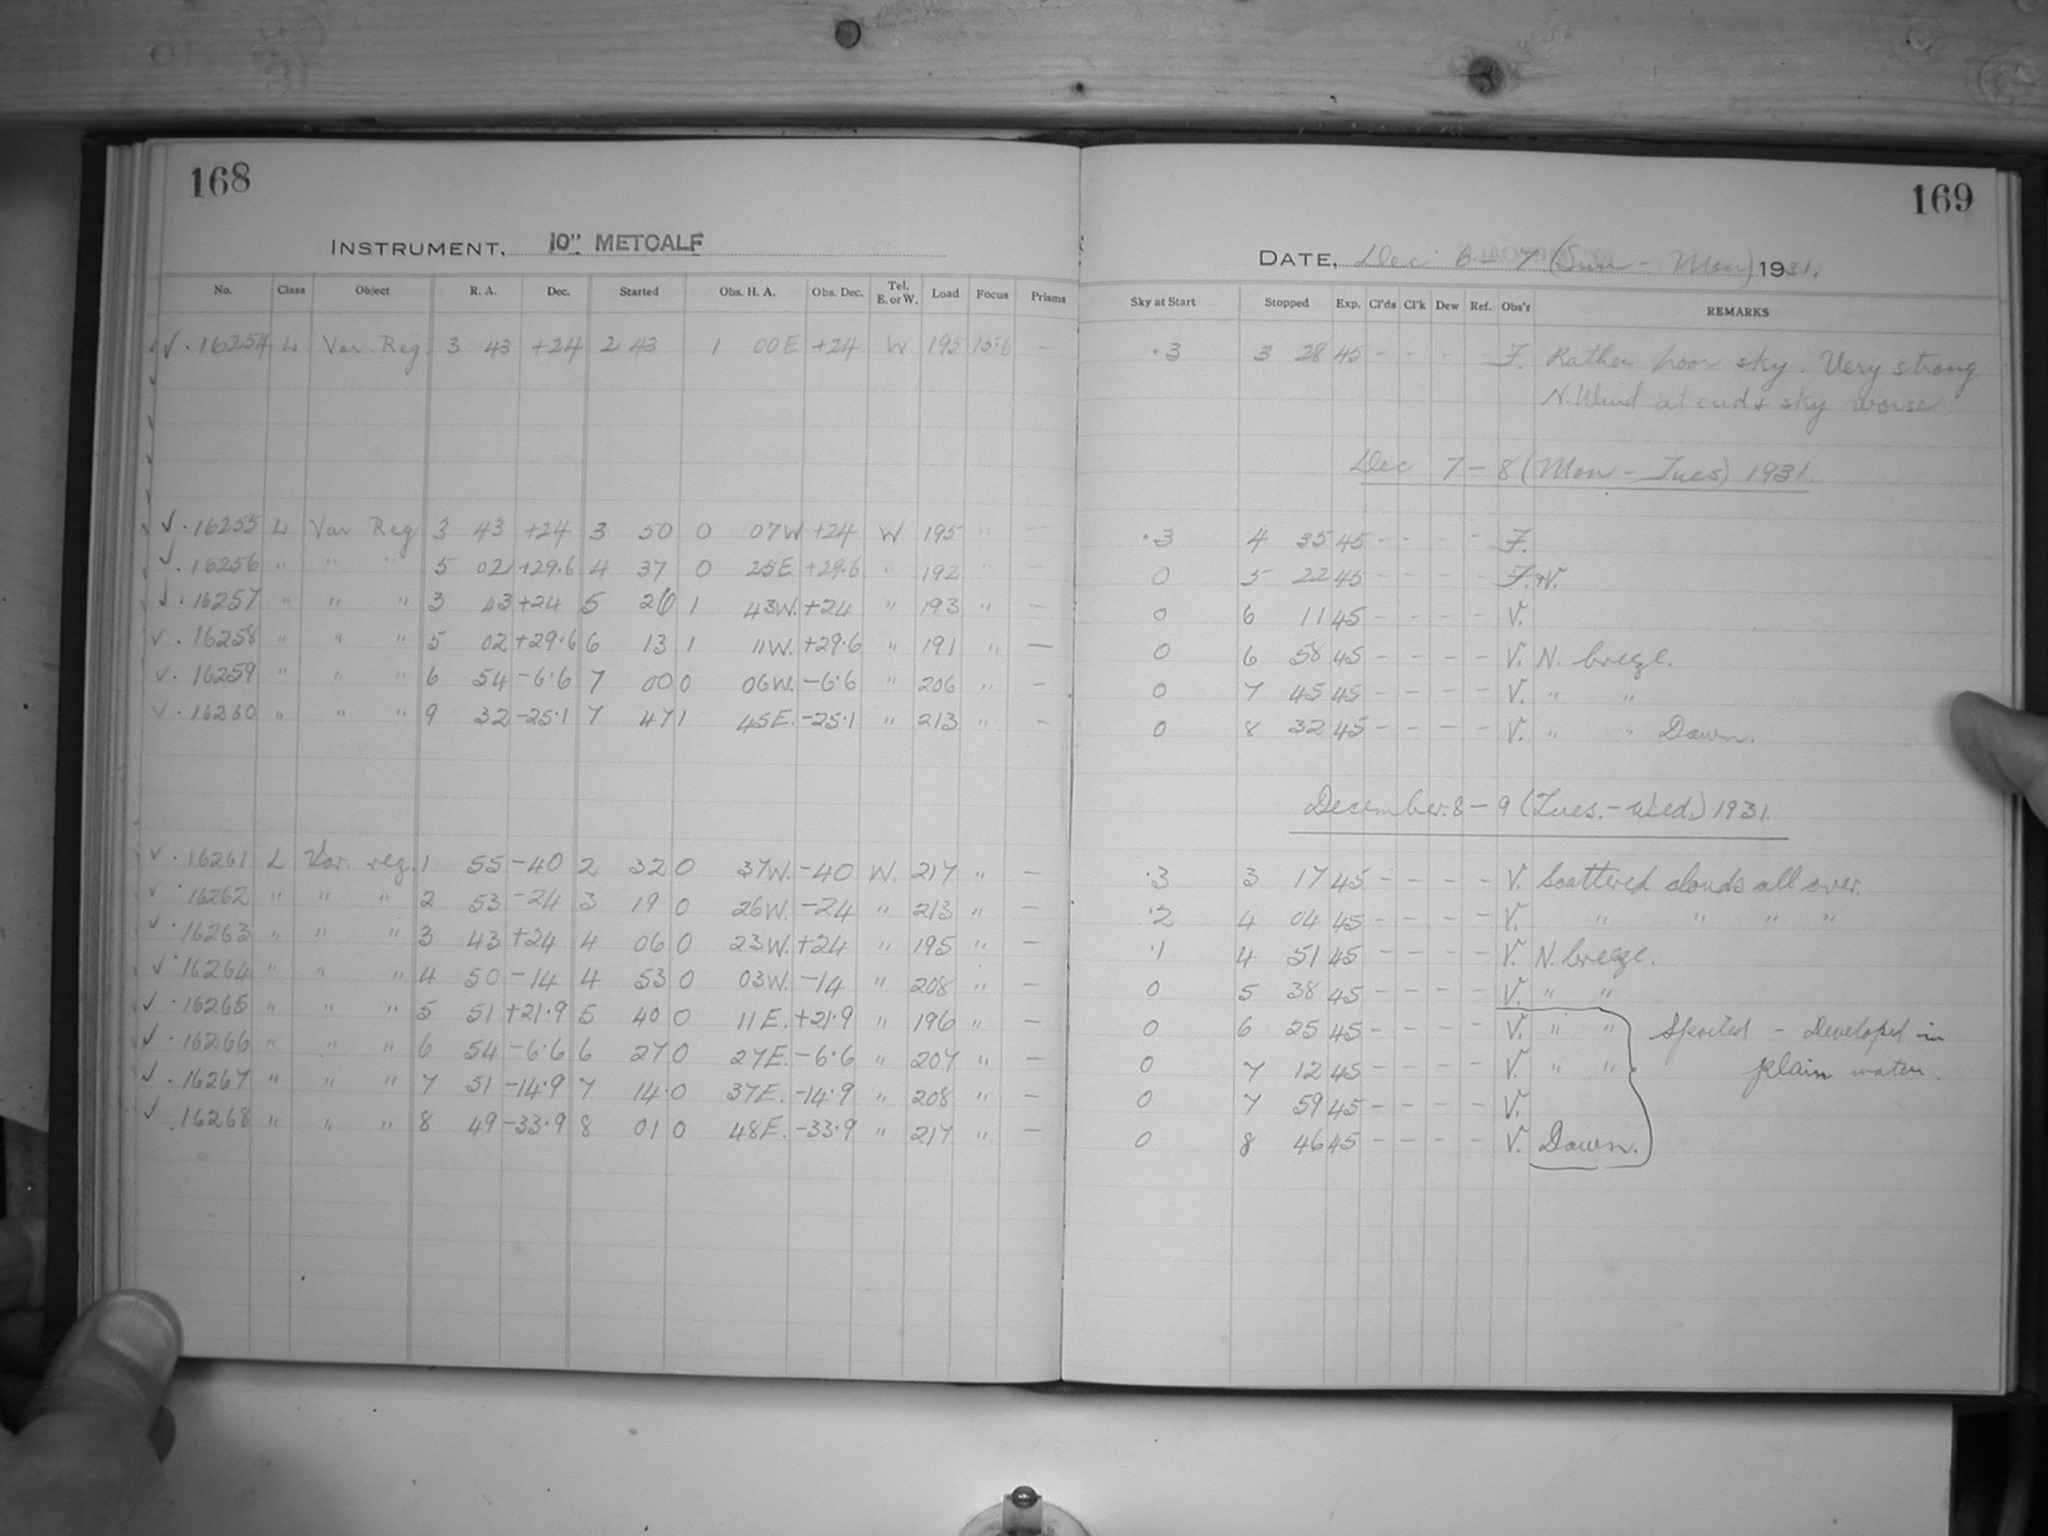 168
INSTRUMENT, 10" METCALF
No. Class Object R. A. Dec. Started Obs. H. A. Obs. Dec. Tel. E. or W. Load Focus Prisms
√ · 16254 L Var. Reg. 3 43 +24 2 43 1 00E +24 W 195 15.6 —
√ · 16255 L Var Reg 3 43 +24 3 50 0 07W +24 W 195 " —
√ · 16256 " " " 5 02 +29.6 4 37 0 25E +29.6 " 192 " —
√ · 16257 " " " 3 43 +24 5 26 1 43W. +24 " 193 " —
√ · 16258 " " " 5 02 +29.6 6 13 1 11W. +29.6 " 191 " —
√ · 16259 " " " 6 54 -6.6 7 00 0 06W. -6.6 " 206 " —
√ · 16260 " " " 9 32 -25.1 7 47 1 45E. -25.1 " 213 " —
√ · 16261 L Var. reg. 1 55 -40 2 32 0 37W. -40 W. 217 " —
√ · 16262 " " " 2 53 -24 3 19 0 26W. -24 " 213 " —
√ · 16263 " " " 3 43 +24 4 06 0 23W. +24 " 195 " —
√ · 16264 " " " 4 50 -14 4 53 0 03W. -14 " 208 " —
√ · 16265 " " " 5 51 +21.9 5 40 0 11E. +21.9 " 196 " —
√ · 16266 " " " 6 54 -6.6 6 27 0 27E. -6.6 " 207 " —
√ · 16267 " " " 7 51 -14.9 7 14 0 37E. -14.9 " 208 " —
√ · 16268 " " " 8 49 -33.9 8 01 0 48E. -33.9 " 217 " —
169
DATE, Dec 6 - 7 (Sun - Mon) 1931.
Sky at Start Stopped Exp. Cl'ds Cl'k Dew Ref. Obs'r REMARKS
.3 3 28 45 - - - - F. Rather poor sky. Very strong
N. Wind at end & sky worse
Dec 7 - 8 (Mon - Tues) 1931.
.3 4 35 45 - - - - F.
0 5 22 45 - - - - F.+V.
0 6 11 45 - - - - V.
0 6 58 45 - - - - V. N. breeze.
0 7 45 45 - - - - V. " "
0 8 32 45 - - - - V. " " Dawn.
December. 8 - 9 (Tues. - Wed.) 1931.
.3 3 17 45 - - - - V. Scattered clouds all over.
.2 4 04 45 - - - - V. " " " "
.1 4 51 45 - - - - V. N. breeze.
0 5 38 45 - - - - V. " "
0 6 25 45 - - - - V. " " Spoiled - Developed in
0 7 12 45 - - - - V. " " plain water.
0 7 59 45 - - - - V.
0 8 46 45 - - - - V. Dawn.